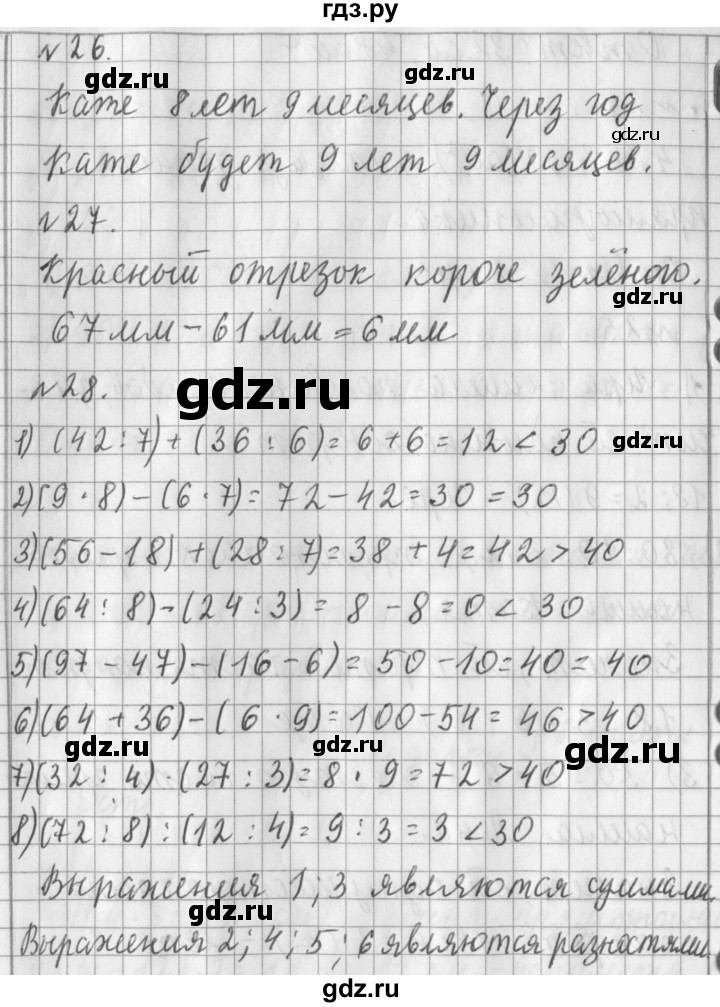 гдз.ру
№26.
gdz.ru
gdz.ru
Кате 8 лет 9 месяцев. Через год
gdz.ru
gdz.ru
Кате будет 9 лет 9 месяцев.
№27.
Красный отрезок короче зелёного.
gdz.ru
67 мм – 61 мм = 6 мм
№28.
gdz.ru
1) (42 : 7) + (36 : 6) = 6 + 6 = 12 < 30
gdz.ru
2) (9 · 8) – (6 · 7) = 72 – 42 = 30 = 30
3) (56 – 18) + (28 : 7) = 38 + 4 = 42 > 40
4) (64 : 8) – (24 : 3) = 8 – 8 = 0 < 30
gdz.ru
gdz.ru
5) (97 – 47) – (16 – 6) = 50 – 10 = 40 = 40
6) (64 + 36) – (6 · 9) = 100 – 54 = 46 > 40
gdz.ru
gdz.ru
gdz.ru
7) (32 : 4) · (27 : 3) = 8 · 9 = 72 > 40
8) (72 : 8) : (12 : 4) = 9 : 3 = 3 < 30
Выражения 1; 3 являются суммами.
gdz.ru
gdz.ru
Выражения 2; 4; 5; 6 являются разностями.
gdz.ru